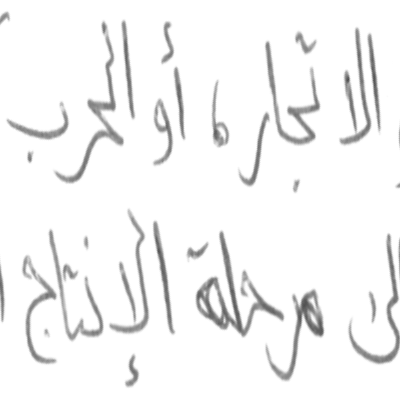 الاتجار، أو الحرب
إلى مرحلة الإنتاج